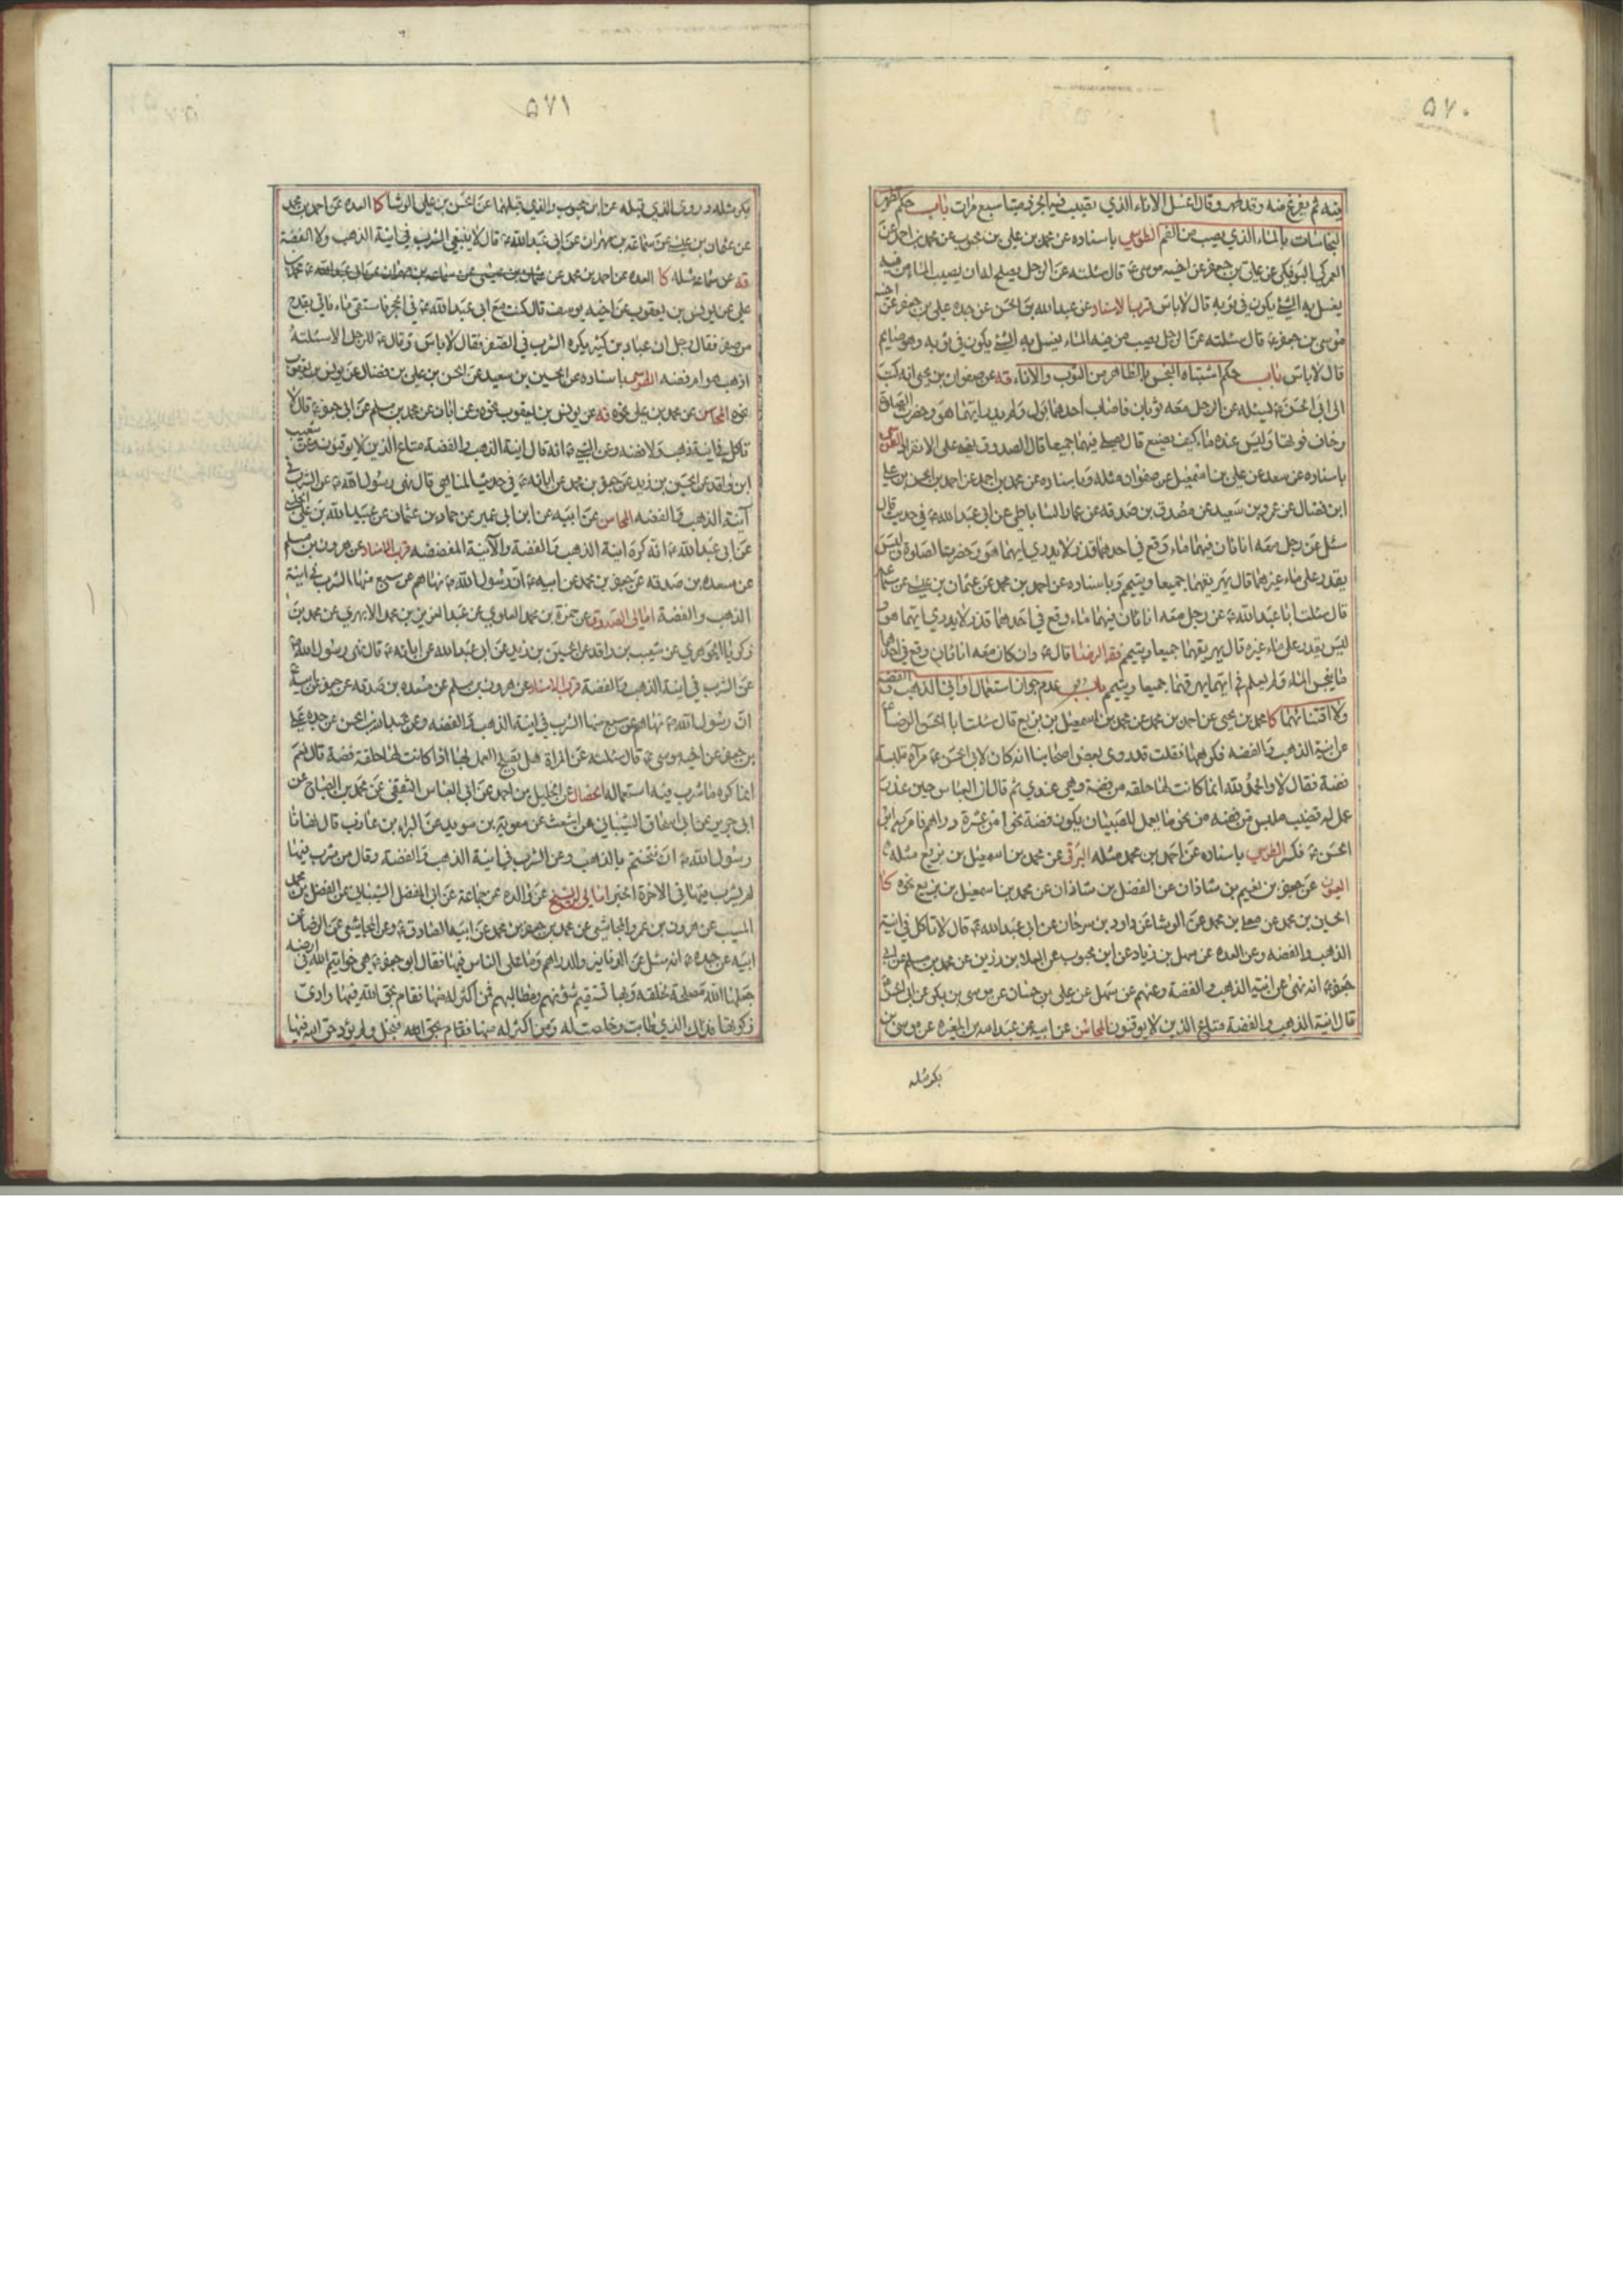 ۵۷۰
فيه ثم يفرغ منه وقد طهر وقال اغسل الاناء الذي تصيب فيه الجرذ ميتا سبع مرات باب حكم تطهير
النجاسات بالماء الذي يصب من الفم الطوسي باسناده عن محمد بن علي بن محبوب عن محمد بن احمد عن
العمركي البوفكي عن علي بن جعفر عن اخيه موسى ع قال سئلته عن الرجل يصلح له ان يصب الماء من فيه
يغسل به الشئ يكون في ثوبه قال لا باس قرب الاسناد عن عبد الله بن الحسن عن جده علي بن جعفر عن اخيه
موسى بن جعفر ع قال سئلته عن الرجل يصب من فيه الماء يغسل به الشئ يكون في ثوبه وهو صايم
قال لا باس باب حكم اشتباه النجس بالطاهر من الثوب والاناء فه عن صفوان بن يحيى انه كتب
الى ابي الحسن ع يسئله عن الرجل معه ثوبان فاصاب احدهما بول ولم يدر ايهما هو وحضرت الصلوة
وخاف فوتها وليس عنده ماء كيف يصنع قال يصلي فيهما جميعا قال الصدوق يعني على الانفراد الطوسي
باسناده عن سعد عن علي بن اسمعيل عن صفوان مثله وباسناده عن محمد بن احمد عن احمد بن الحسن بن علي
ابن فضال عن عمرو بن سعيد عن مصدق بن صدقه عن عمار الساباطي عن ابي عبد الله ع في حديث قال
سئل عن رجل معه اناءان فيهما ماء وقع في احدهما قذر لا يدري ايهما هو وحضرت الصلوة وليس
يقدر على ماء غيرهما قال يهريقهما جميعا ويتيمم وباسناده عن احمد بن محمد عن عثمان بن عيسى عن سماعه
قال سئلت ابا عبد الله ع عن رجل معه اناءان فيهما ماء وقع في احدهما قذر لا يدري ايهما هو و
ليس يقدر على ماء غيره قال يهريقهما جميعا ويتيمم فقه الرضا قال ع وان كان معه اناءان وقع في احدهما
ما ينجس الماء ولم يعلم في ايهما يهرقهما جميعا ويتيمم باب عدم جواز استعمال اواني الذهب والفضة
ولا اقتنائهما كا محمد بن يحيى عن احمد بن محمد عن محمد بن اسمعيل بن بزيع قال سئلت ابا الحسن الرضا ع
عن انية الذهب والفضه فكرههما فقلت قد روى بعض اصحابنا انه كان لابي الحسن ع مرآة ملبسة
فضة فقال لا والحمد لله انما كانت لها حلقه من فضة وهي عندي ثم قال ان العباس حين عذر
عمل له قضيب ملبس من فضه من نحو ما يعمل للصبيان يكون فضة نحوا من عشرة دراهم فامر به ابو
الحسن ع فكسر الطوسي باسناده عن احمد بن محمد مثله البرقي عن محمد بن اسمعيل بن بزيع مثله
العيون عن جعفر بن نعيم بن شاذان عن الفضل بن شاذان عن محمد بن اسمعيل بن بزيع نحوه كا
الحسين بن محمد عن معلى بن محمد عن الوشا عن داود بن سرحان عن ابي عبد الله ع قال لا تاكل في انية
الذهب والفضه وعن العده عن سهل بن زياد عن ابن محبوب عن العلا بن رزين عن محمد بن مسلم عن ابي
جعفر ع انه نهى عن انية الذهب والفضة وعنهم عن سهل عن علي بن حسان عن موسى بن بكر عن ابي الحسن ع
قال انية الذهب والفضة متاع الذين لا يوقنون المحاسن عن ابيه عن عبد الله بن المغيره عن موسى بن
بكر مثله
۵۷۱
بكر مثله وروى الذي قبله عن ابن محبوب والذي قبلهما عن الحسن بن علي الوشا كا العده عن احمد بن محمد
عن عثمان بن عيسى عن سماعة بن مهران عن ابي عبد الله ع قال لا ينبغي الشرب في انية الذهب ولا الفضة
فه عن سماعة مثله كا العده عن احمد بن محمد عن عثمان بن عيسى عن سماعه بن مهران عن ابي عبد الله ع محمد بن
علي عن يونس بن يعقوب عن اخيه يوسف قال كنت مع ابي عبد الله ع في الحجر فاستقى ماء فاتي بقدح
من صفر فقال رجل ان عباد بن كثير يكره الشرب في الصفر فقال لا باس وقال ع للرجل الا سئلته
اذهب هو ام فضه الطوسي باسناده عن الحسين بن سعيد عن الحسن بن علي بن فضال عن يونس بن يعقوب
نحوه المحاسن عن محمد بن علي نحوه فه عن يونس بن يعقوب نحوه وعن ابان عن محمد بن مسلم عن ابي جعفر ع قال لا
تاكل في انية ذهب ولا فضه وعن النبي ص انه قال انية الذهب والفضة متاع الذين لا يوقنون وعن شعيب
ابن واقد عن الحسين بن زيد عن جعفر بن محمد عن ابائه ع في حديث المناهي قال نهى رسول الله ص عن الشرب في
آنية الذهب والفضه المحاسن عن ابيه عن ابن ابي عمير عن حماد بن عثمان عن عبيد الله بن علي الحلبي
عن ابي عبد الله ع انه كره انية الذهب والفضة والآنية المفضضه قرب الاسناد عن هرون بن مسلم
عن مسعده بن صدقه عن جعفر بن محمد عن ابيه ع ان رسول الله ص نهاهم عن سبع منها الشرب في انية
الذهب والفضة امالي الصدوق عن حمزة بن محمد العلوي عن عبد العزيز بن محمد الابهري عن محمد بن
زكريا الجوهري عن شعيب بن واقد عن الحسين بن زيد عن ابي عبد الله عن ابائه ع قال نهى رسول الله ص
عن الشرب في انية الذهب والفضة قرب الاسناد عن هرون بن مسلم عن مسعده بن صدقه عن جعفر عن ابيه ع
ان رسول الله ص نهاهم عن سبع منها الشرب في انية الذهب والفضه وعن عبد الله بن الحسن عن جده علي
بن جعفر عن اخيه موسى ع قال سئلته عن المراة هل يصلح العمل بها اذا كانت لها حلقة فضة قال نعم
انما كره ما شرب فيه استعماله الخصال عن الخليل بن احمد عن ابي العباس الثقفي عن محمد بن الصباح عن
ابي جرير عن ابي اسحاق الشيباني عن اشعث عن معوية بن سويد عن البراء بن عازب قال نهانا
رسول الله ص ان نتختم بالذهب وعن الشرب في انية الذهب والفضة وقال من شرب فيها
لم يشرب فيها في الاخرة الخبر امالي ابن الشيخ عن والده عن جماعة عن ابي المفضل الشيباني عن الفضل بن محمد
المسيب عن هرون بن عمرو المجاشعي عن محمد بن جعفر بن محمد عن ابيه الصادق ع وعن المجاشعي عن الرضا عن
ابيه عن جده ع انه سئل عن الدنانير والدراهم وما على الناس فيها فقال ابو جعفر ع هي خواتيم الله في ارضه
جعلها الله مصلحة لخلقه وبها تستقيم شؤنهم ومطالبهم فمن اكثر له منها فقام بحق الله فيها وادى
زكوتها فذلك الذي طابت وخلصت له ومن اكثر له منها فقام بحق الله فبخل ولم يؤد حق الله فيها